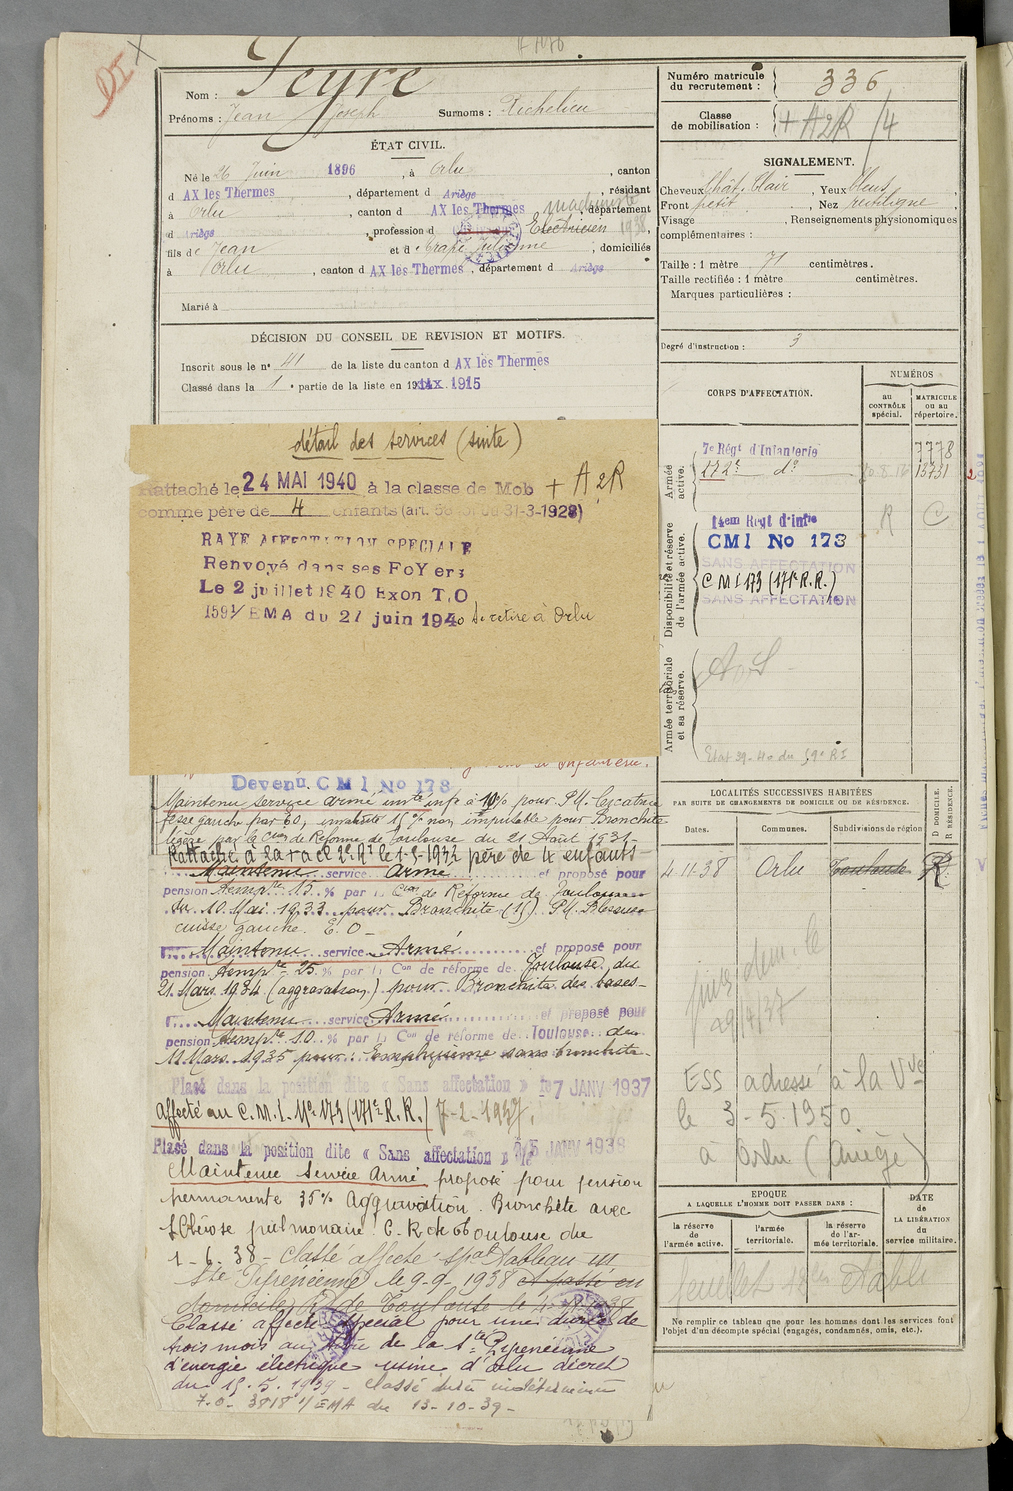 Nom : Peyre
Prénoms : Jean Joseph Surnoms : Richelieu
ÉTAT CIVIL.
Né le 26 Juin 1896, à Orlu, canton
d AX les Thermes, département d Ariège, résidant
à Orlu, canton d AX les Thermes, département
d Ariège, profession d Electricien 1938,
fils de Jean et de Crapé Julienne, domiciliés
à Orlu, canton d AX les Thermes, département d Ariège
Marié à
DÉCISION DU CONSEIL DE REVISION ET MOTIFS.
Inscrit sous le n° 41 de la liste du canton d AX les Thermes
Classé dans la 1e partie de la liste en 1915
détail des services (suite)
Rattaché le 24 MAI 1940 à la classe de Mob + A2R
comme père de 4 enfants (art. 58 31-3-1928)
RAYE AFFECTATION SPECIALE
Renvoyé dans ses FoYers
Le 2 juillet 1940 Exon T.O
1591/ EMA du 21 juin 1940 se retire à Orlu
d'Infanterie.
Devenu CMI No 173
Maintenu service armé inv. inf. à 10% pour P.U. Cicatrice
fesse gauche par EO, invalidité 15% non imputable pour Bronchite
légère par la Con de Réforme de Toulouse du 21 Août 1931-
Rattaché à la cl. de 2e Rt le 1-3-1932 père de 4 enfants
Maintenu service Armé et proposé pour
pension temp.re 15 % par la Con de Réforme de Toulouse
du 10 Mai 1933 pour Bronchite (15) P.U. Blessure
cuisse gauche. E.O -
Maintenu service Armé et proposé pour
pension temp.re 25 % par la Con de réforme de Toulouse du
21 Mars 1934 (aggravation) pour Bronchite des bases-
Maintenu service Armé et proposé pour
pension temp.re 10 % par la Con de réforme de Toulouse du
11 Mars 1935 pour Emphysème sans bronchite-
Placé dans la position dite « Sans affectation » le 7 JANV 1937
Affecté au C.M.I. No 173 (171e R.R.) 7-2-1937.
Placé dans la position dite « Sans affectation » le 15 JANV 1938
Maintenu Service Armé proposé pour pension
permanente 35% Aggravation. Bronchite avec
Sclérose pulmonaire C.R. de Toulouse du
1-6-38- Classé affecté spal Tableau III
Sté Pyrénéenne le 9-9-1938 A passé en
domicile R. de Toulouse le 4-11-38
Classé affecté spécial pour une durée de
trois mois au titre de la Sté Pyrénéenne
d'énergie électrique usine d'Orlu décret
du 15.5.1939 - Classé durée indéterminée
7.0- 3818 1/EMA du 13-10-39-
Numéro matricule du recrutement : 336
Classe de mobilisation : + A2R /4
SIGNALEMENT.
Cheveux Chât. Clair, Yeux bleus,
Front petit, Nez rectiligne,
Visage, Renseignements physionomiques
complémentaires :
Taille : 1 mètre 71 centimètres.
Taille rectifiée : 1 mètre centimètres.
Marques particulières :
Degré d'instruction : 3
CORPS D'AFFECTATION.
NUMÉROS
au CONTRÔLE spécial.
MATRICULE ou au répertoire.
Armée active.
7e Régt d'Infanterie 7778
172e do 13731
Disponibilité et réserve de l'armée active.
14em Regt d'infie R C
CMI No 173
SANS AFFECTATION
CMI 173 (171e R.R.)
SANS AFFECTATION
Armée territoriale et sa réserve.
A.S
Etat 39-40 du 59e RI
LOCALITÉS SUCCESSIVES HABITÉES
PAR SUITE DE CHANGEMENTS DE DOMICILE OU DE RÉSIDENCE.
Dates. Communes. Subdivisions de région
D DOMICILE. R RÉSIDENCE.
4.11.38 Orlu Toulouse R.
29/4/37
ESS adressé à la Vve
le 3-5-1950
à Orlu (Ariège)
EPOQUE
A LAQUELLE L'HOMME DOIT PASSER DANS :
la réserve de l'armée active.
l'armée territoriale.
la réserve de l'armée territoriale.
DATE de LA LIBÉRATION du service militaire.
feuillet
Ne remplir ce tableau que pour les hommes dont les services font
l'objet d'un décompte spécial (engagés, condamnés, omis, etc.).